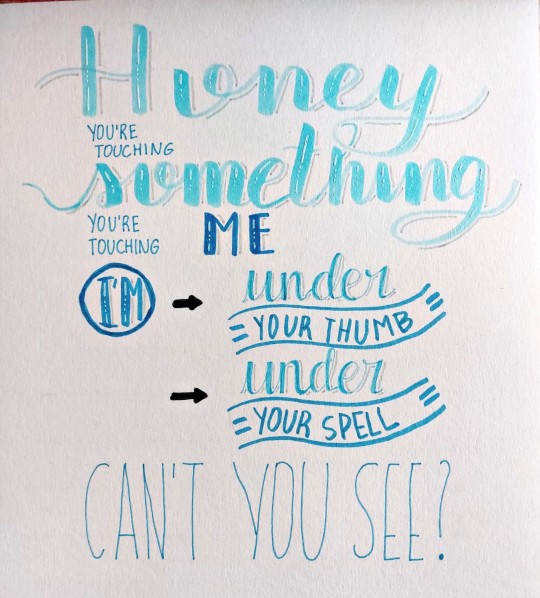 Honey
YOU'RE
TOUCHING
something
YOU'RE
TOUCHING ME
I'M → under
YOUR THUMB
→ under
YOUR SPELL
CAN'T YOU SEE?